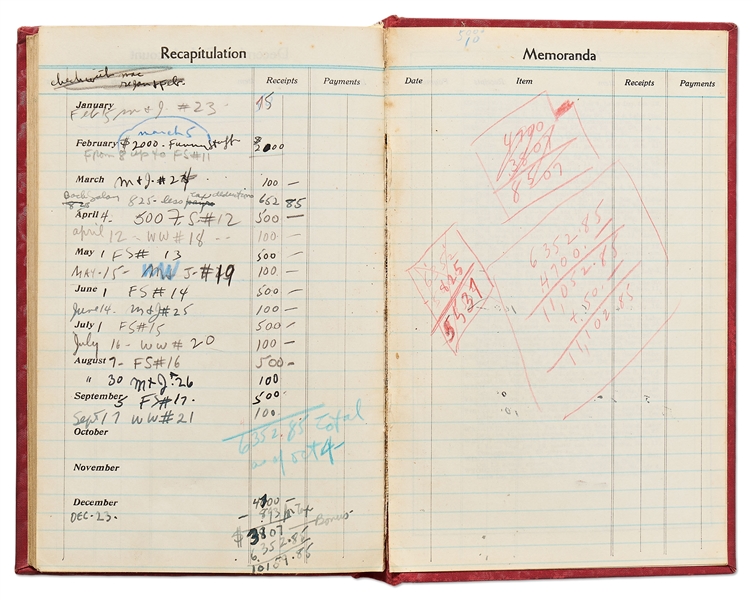 Recapitulation
Receipts Payments
January
Feb 5 M & J. #23 - 15
march 5
February $2000 - Funny Stuff $2000
From 8 up to FS #11
March M & J. #24 100 —
825 - less deductions 652 85
April 4 - 500 F.S. #12 500 —
april 12 - WW #18 -- 100 —
May 1 FS# 13 500 —
MAY-15- WW J. #19 100 —
June 1 FS #14 500 —
June 14. M&J #25 100 —
July 1 FS #15 500 —
July 16 - WW # 20 100 —
August 7- FS #16 500 —
" 30 M & J. 26 100
September 5 FS #17. 500
Sept 17 WW #21 100
October
6352.85 total
as of oct 4
November
December 4700 —
DEC-23. - 893 Tax
$3807 — Bonus
6352.85
10159.85
5000
10
Memoranda
Date Item Receipts Payments
8580
6352.85
4700.
11052.85
+ 50.
11102.85
825